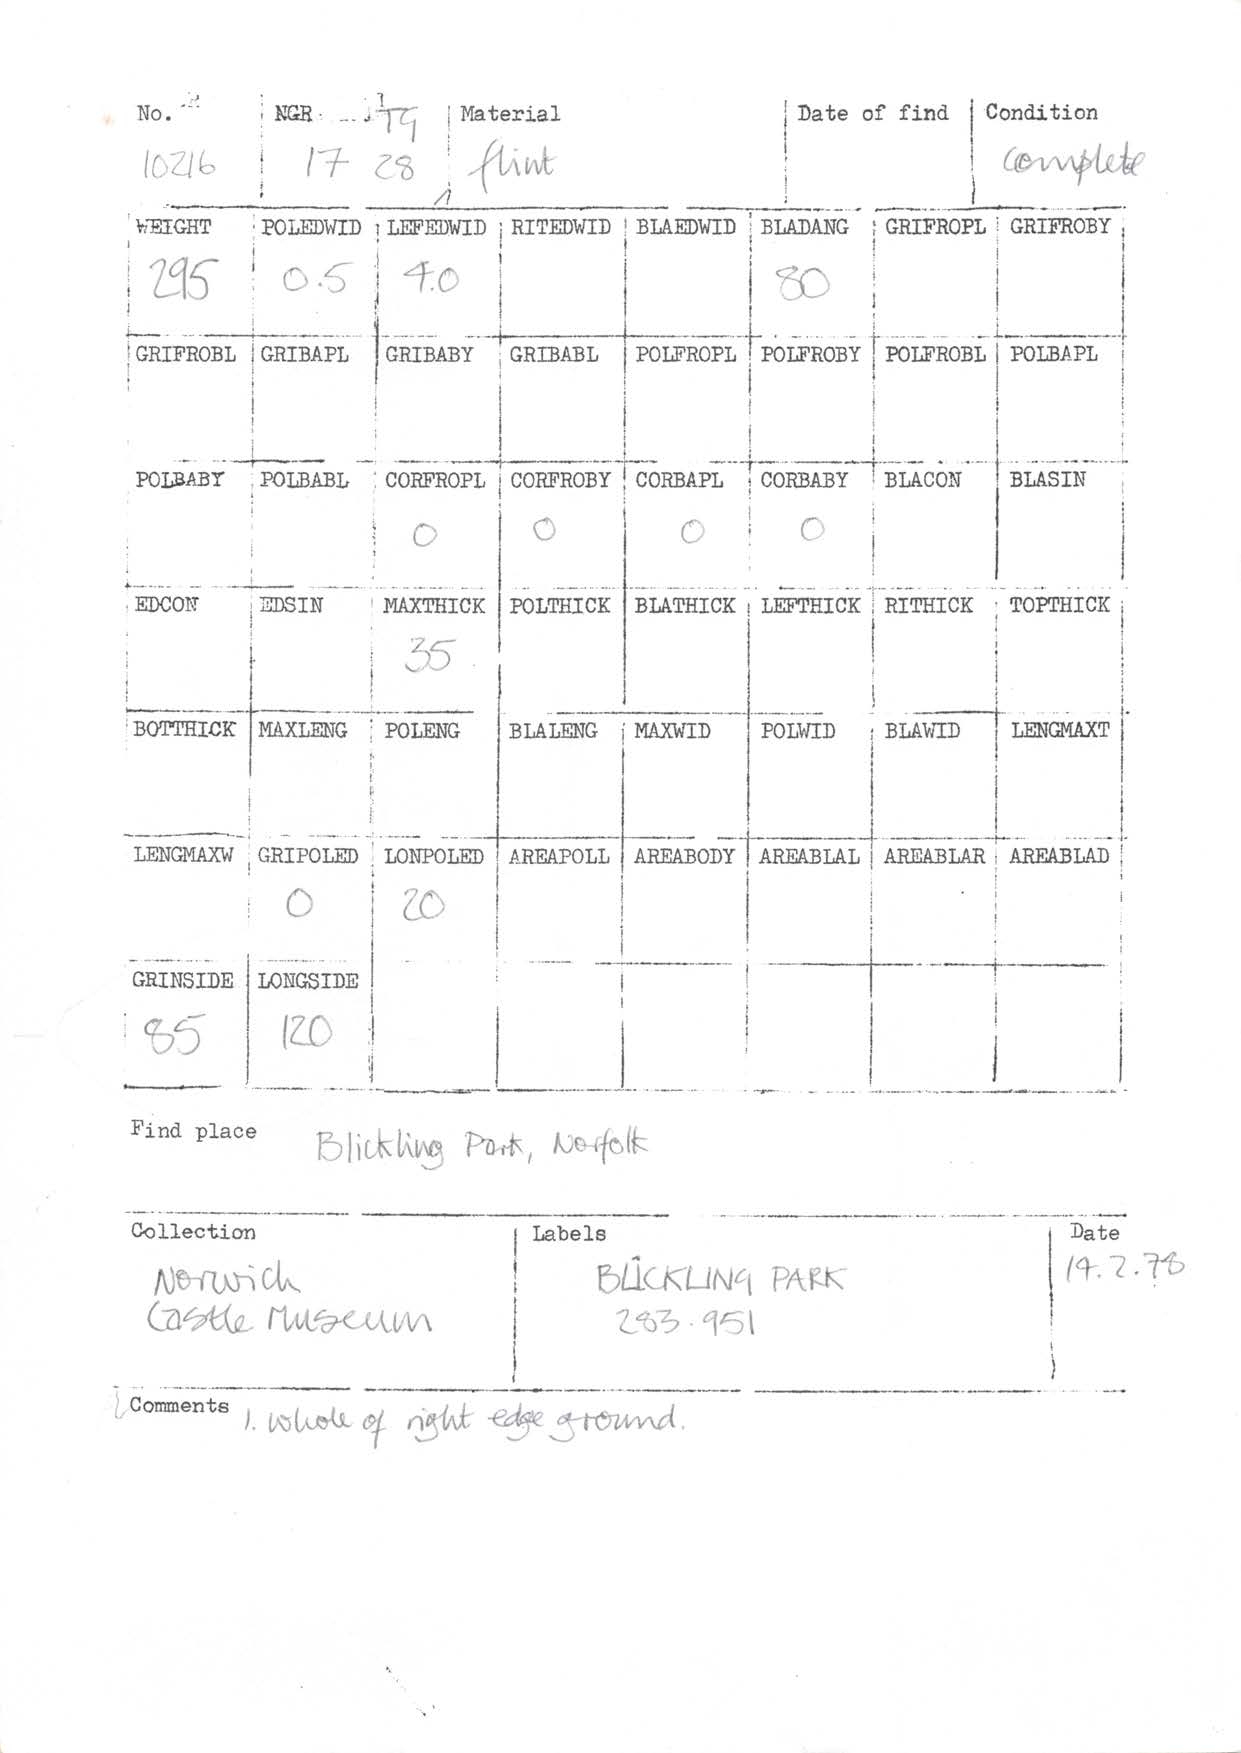 No. NGR TG Material Date of find Condition
10216 17 28 flint complete
WEIGHT POLEDWID LEFEDWID RITEDWID BLAEDWID BLADANG GRIFROPL GRIFROBY
295 0.5 4.0 80
GRIFROBL GRIBAPL GRIBABY GRIBABL POLFROPL POLFROBY POLFROBL POLBAPL
POLBABY POLBABL CORFROPL CORFROBY CORBAPL CORBABY BLACON BLASIN
0 0 0 0
EDCON EDSIN MAXTHICK POLTHICK BLATHICK LEFTHICK RITHICK TOPTHICK
35
BOTTHICK MAXLENG POLENG BLALENG MAXWID POLWID BLAWID LENGMAXT
LENGMAXW GRIPOLED LONPOLED AREAPOLL AREABODY AREABLAL AREABLAR AREABLAD
0 20
GRINSIDE LONGSIDE
85 120
Find place Blickling Park, Norfolk
Collection Labels Date
Norwich BLICKLING PARK 14.2.78
Castle Museum 283.951
Comments 1. whole of right edge ground.